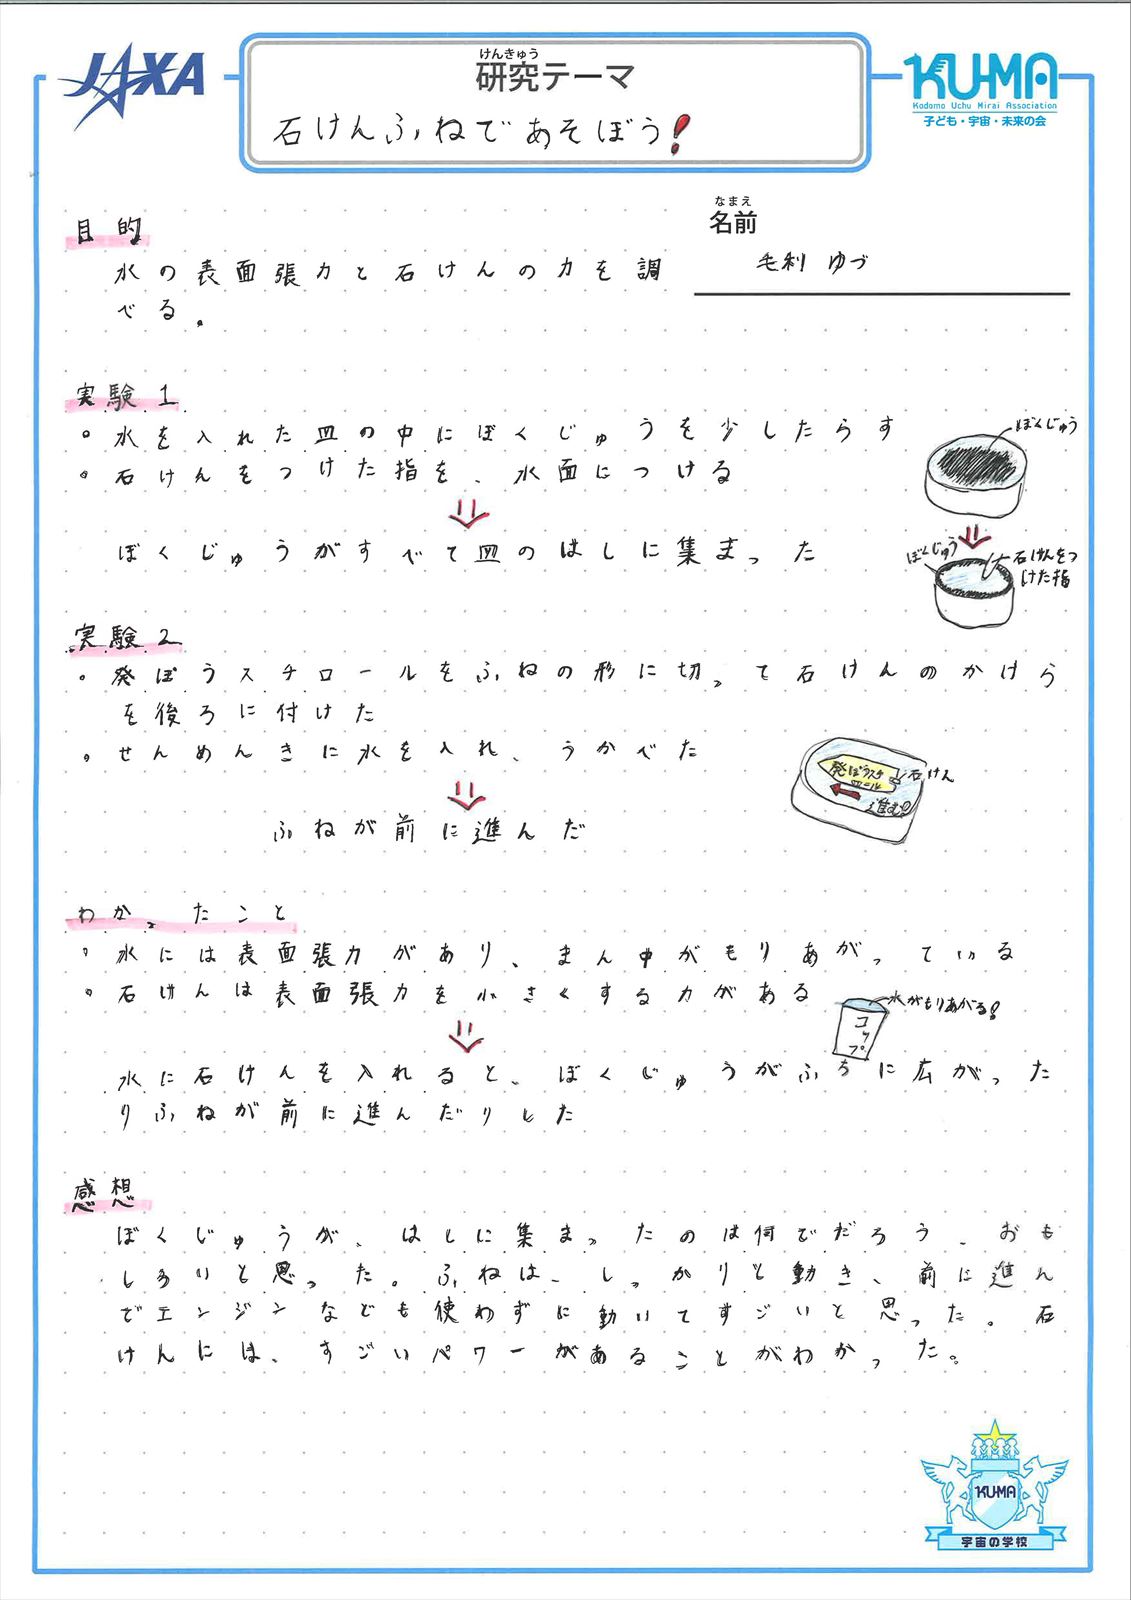 JAXA
けんきゅう
研究テーマ
石けんふねであそぼう!
KU-MA
Kodomo Uchu Mirai Association
子ども・宇宙・未来の会
なまえ
名前
毛利 ゆづ
目的
水の表面張力と石けんの力を調
べる。
実験1
・水を入れた皿の中にぼくじゅうを少したらす
・石けんをつけた指を、水面につける
ぼくじゅう
⇓
ぼくじゅうがすべて皿のはしに集まった
⇓
ぼくじゅう
石けんをつ
けた指
実験2
・発ぽうスチロールをふねの形に切って石けんのかけら
を後ろに付けた
・せんめんきに水を入れ、うかべた
発ぽうスチ
ロール
石けん
進む
⇓
ふねが前に進んだ
わかったこと
・水には表面張力があり、まん中がもりあがっている
・石けんは表面張力を小さくする力がある
水がもりあがる!
コップ
⇓
水に石けんを入れると、ぼくじゅうがふちに広がった
りふねが前に進んだりした
感想
ぼくじゅうが、はしに集まったのは何でだろう、おも
しろいと思った。ふねは、しっかりと動き、前に進ん
でエンジンなども使わずに動いてすごいと思った。石
けんには、すごいパワーがあることがわかった。
KU-MA
宇宙の学校